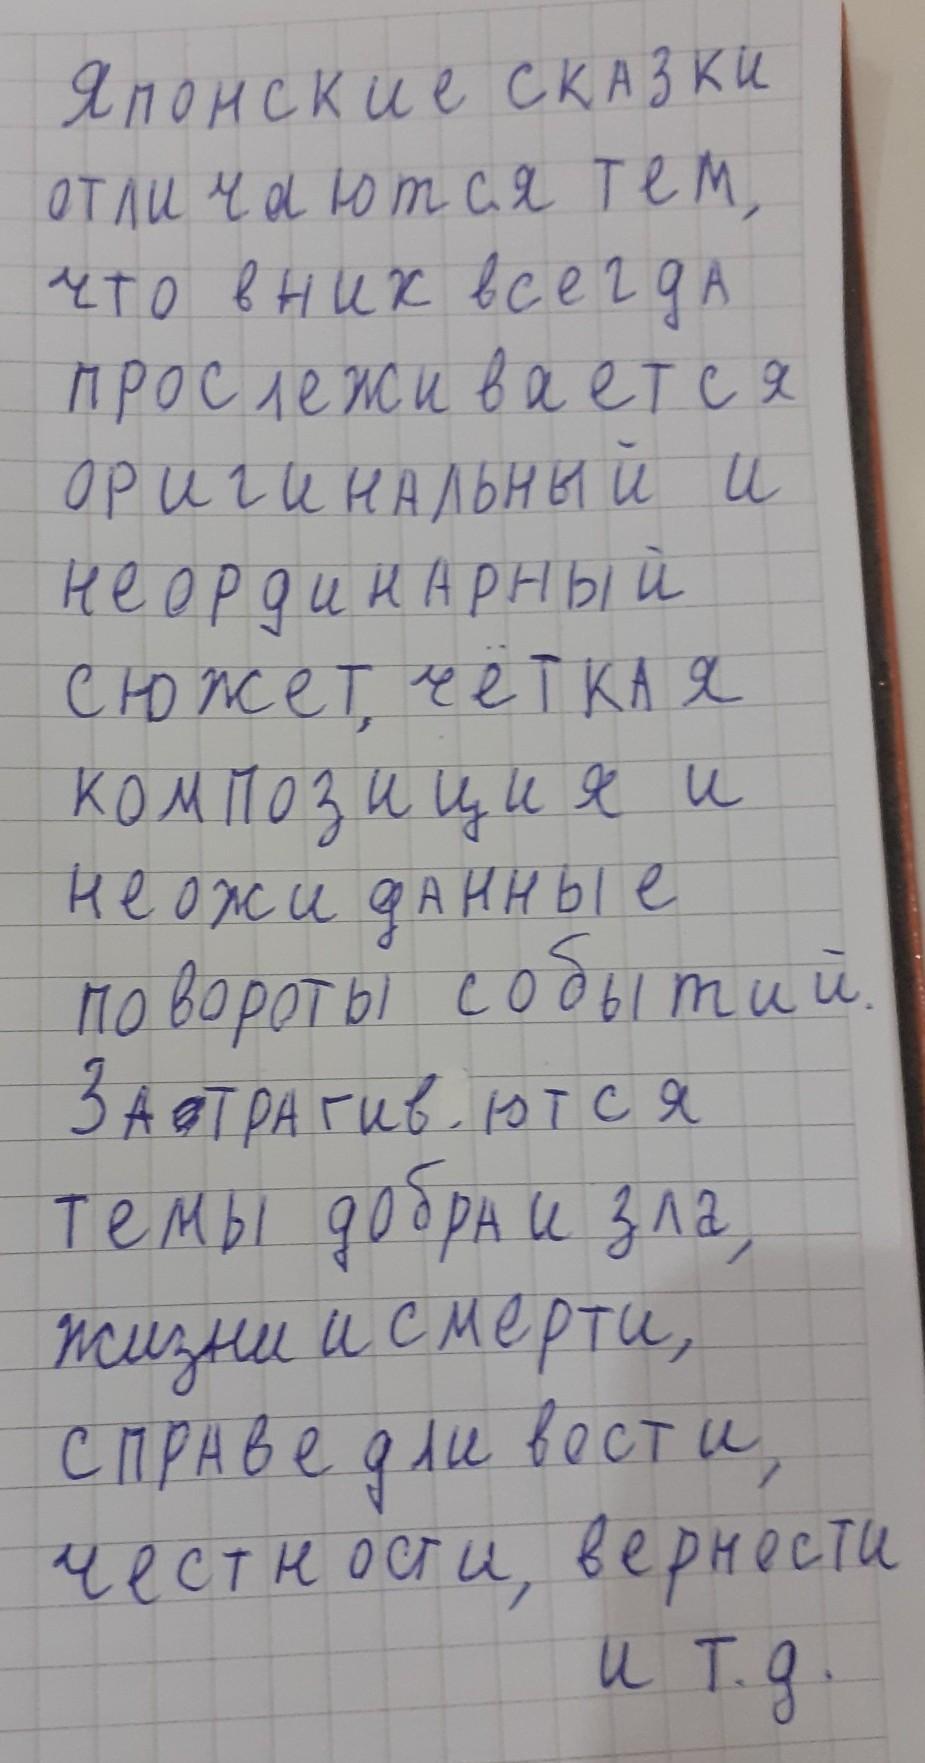 Японские сказки
отличаются тем,
что в них всегда
прослеживается
оригинальный и
неординарный
сюжет, чёткая
композиция и
неожиданные
повороты событий.
темы добра и зла,
жизни и смерти,
справедливости,
честности, верности
и т.д.